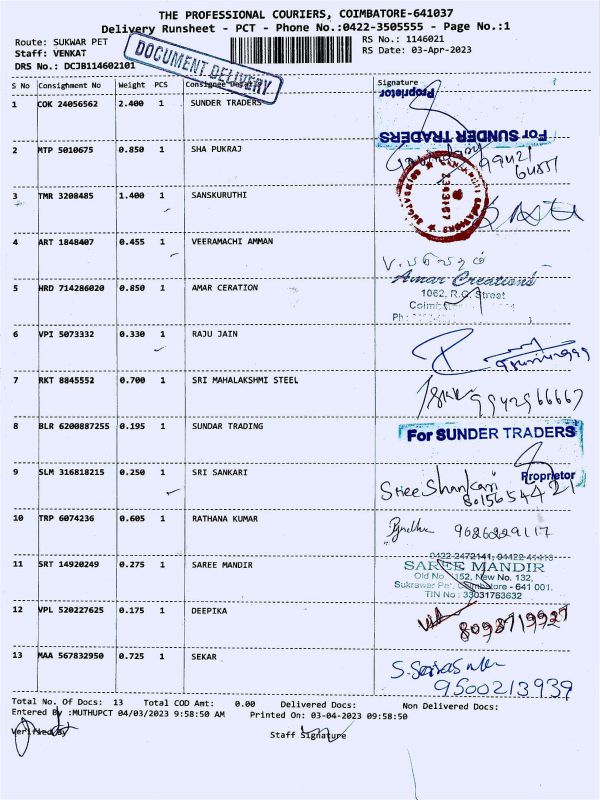 THE PROFESSIONAL COURIERS, COIMBATORE-641037
Delivery Runsheet - PCT - Phone No.:0422-3505555 - Page No.:1
Route: SUKWAR PET
RS No.: 1146021
Staff: VENKAT
RS Date: 03-Apr-2023
DRS No.: DCJB114602101
DOCUMENT DELIVERY
S No Consignment No Weight PCS Consignee Signature
1 COK 24056562 2.400 1 SUNDER TRADERS
Proprietor
For SUNDER TRADERS
2 MTP 5010675 0.850 1 SHA PUKRAJ
99421
3 TMR 3208485 1.400 1 SANSKURUTHI
4 ART 1848407 0.455 1 VEERAMACHI AMMAN
5 HRD 714286020 0.850 1 AMAR CERATION
Amar Creations
1062, R.G. Street
6 VPI 5073332 0.330 1 RAJU JAIN
7 RKT 8845552 0.700 1 SRI MAHALAKSHMI STEEL
9942966667
8 BLR 6200887255 0.195 1 SUNDAR TRADING
For SUNDER TRADERS
Proprietor
9 SLM 316818215 0.250 1 SRI SANKARI
Sree Shankari
8015654421
10 TRP 6074236 0.605 1 RATHANA KUMAR
9626229117
11 SRT 14920249 0.275 1 SAREE MANDIR
SAREE MANDIR
Old No 152, New No. 132,
Coimbatore - 641 001.
TIN No : 33031763632
12 VPL 520227625 0.175 1 DEEPIKA
8098719927
13 MAA 567832950 0.725 1 SEKAR
9500213939
Total No. Of Docs: 13 Total COD Amt: 0.00 Delivered Docs: Non Delivered Docs:
Entered By :MUTHUPCT 04/03/2023 9:58:50 AM Printed On: 03-04-2023 09:58:50
Verified By
Staff Signature